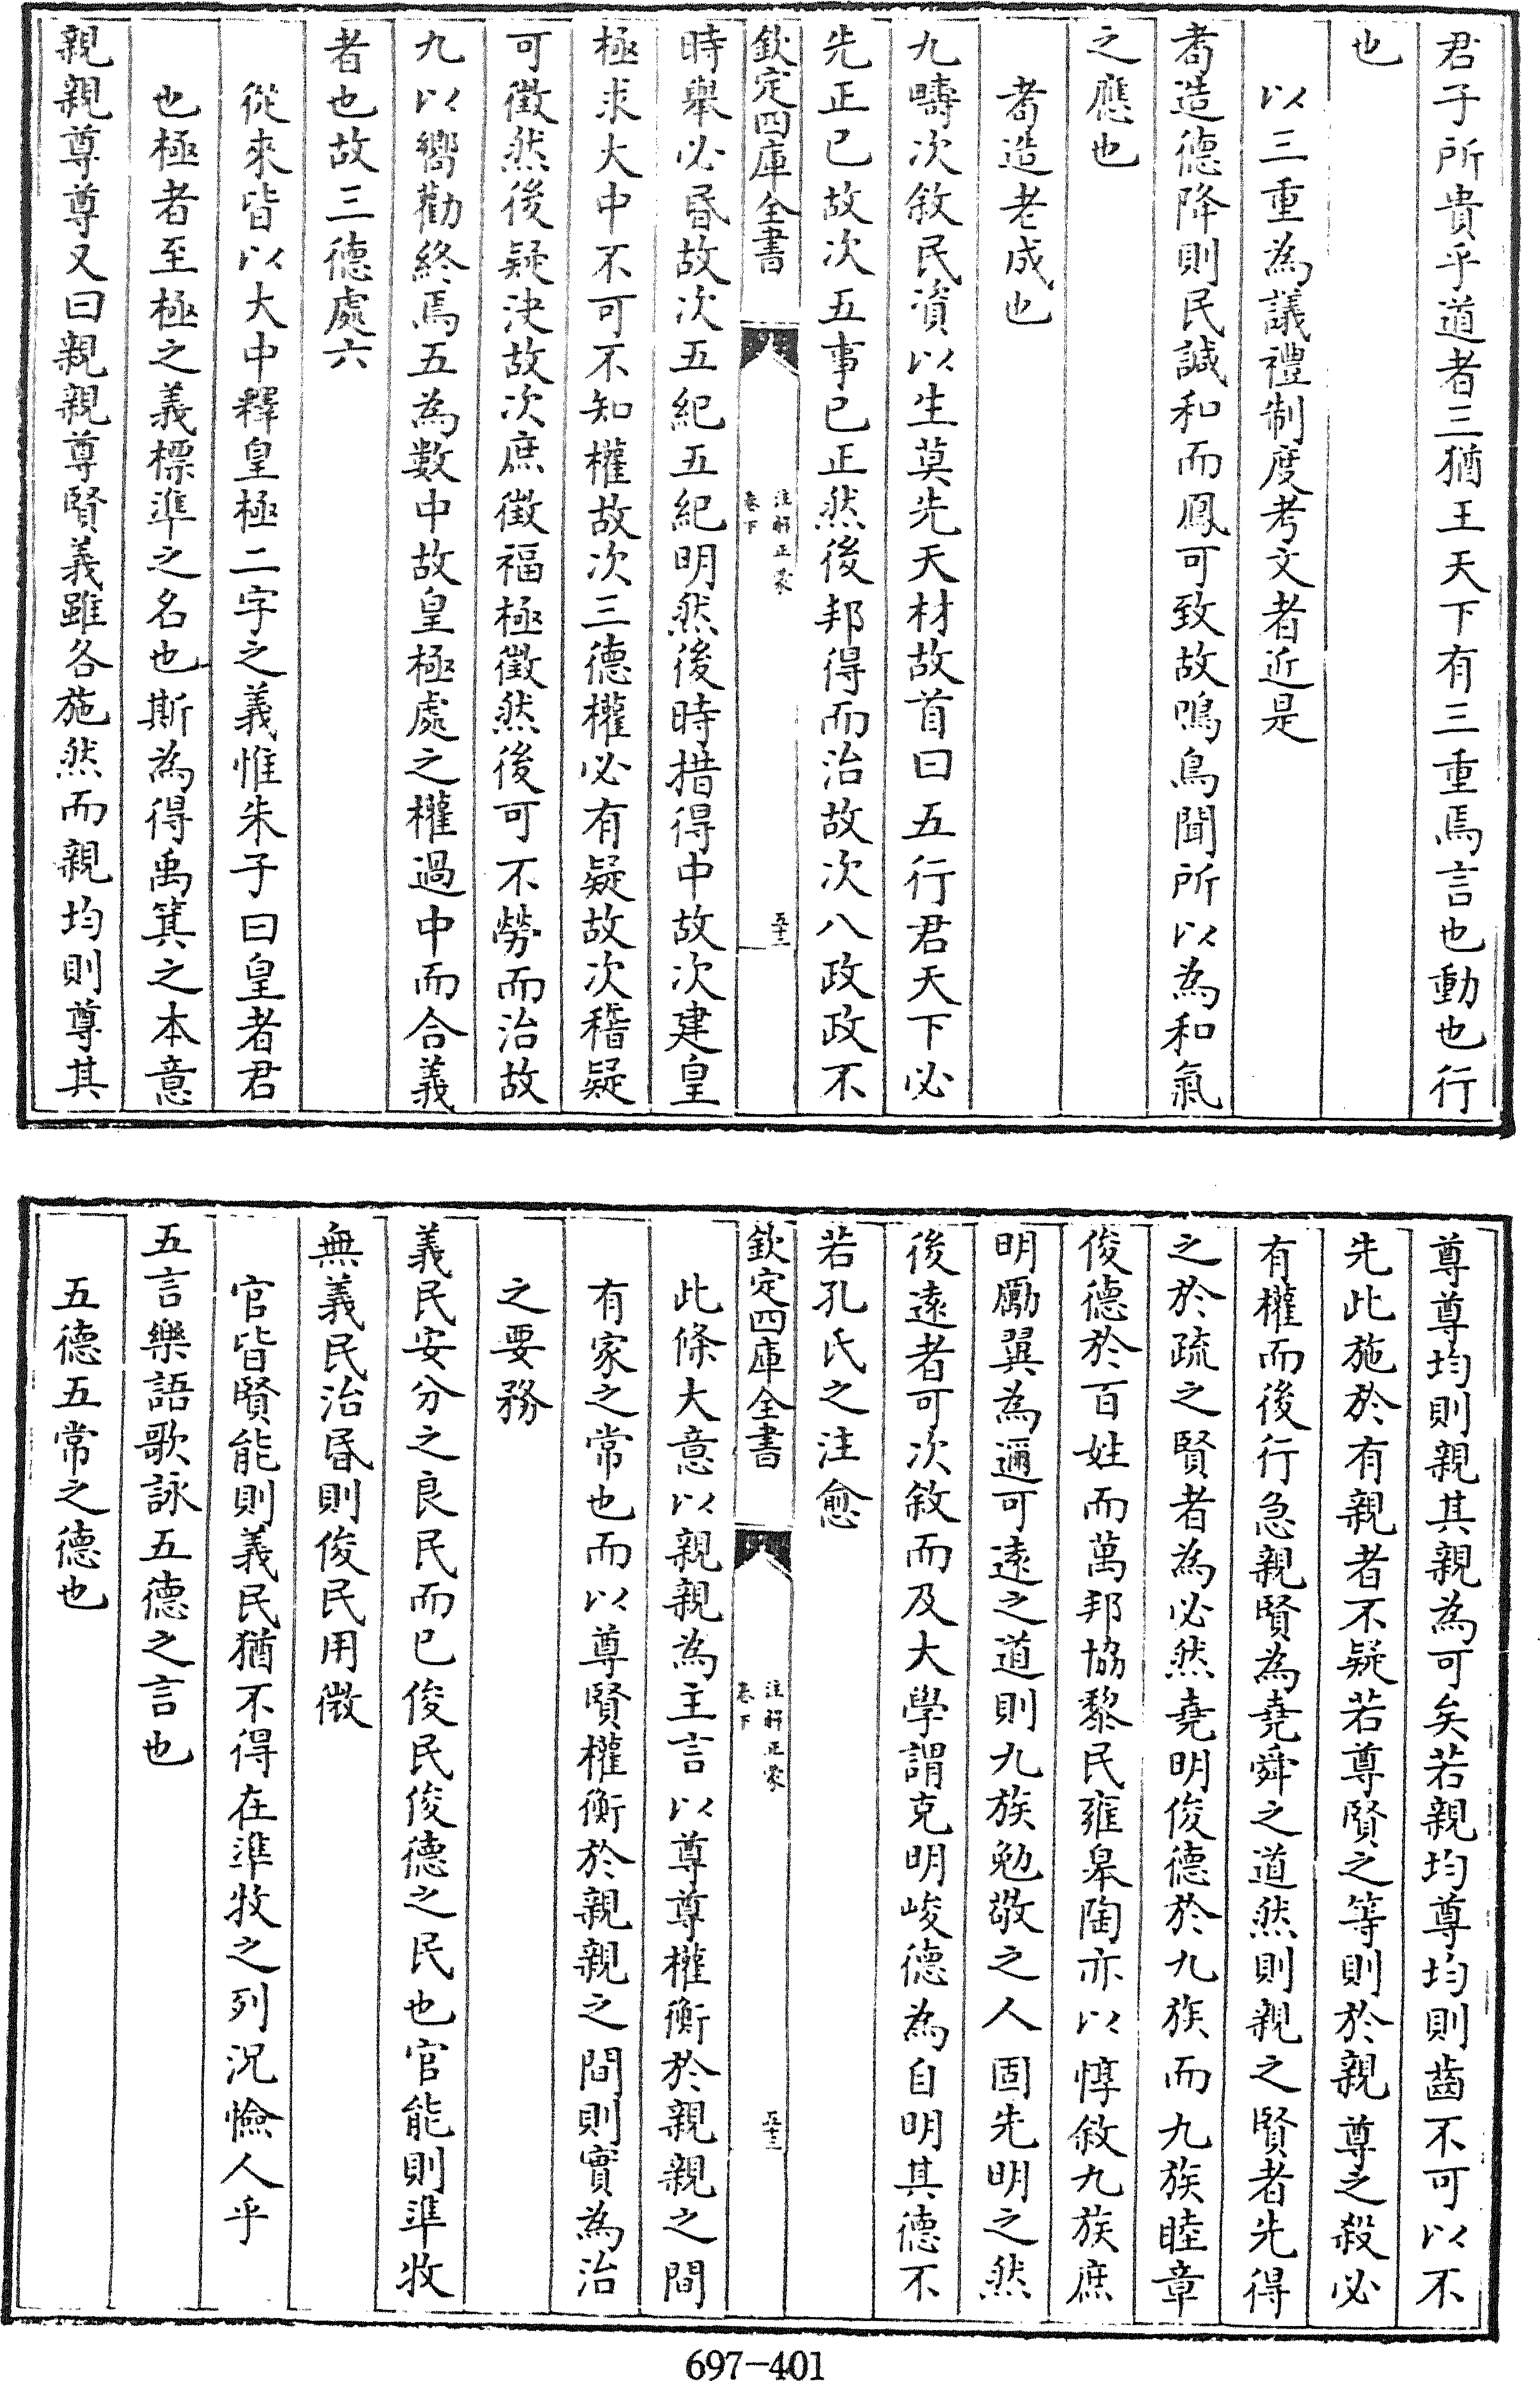 君子所貴乎道者三猶王天下有三重焉言也動也行
也
以三重為議禮制度考文者近是
耉造德降則民諴和而鳳可致故鳴鳥聞所以為和氣
之應也
耉造老成也
九疇次敘民資以生莫先天材故首曰五行君天下必
先正已故次五事已正然後邦得而治故次八政政不
欽定四庫全書
注解正蒙
卷下
五十二
時舉必昬故次五紀五紀明然後時措得中故次建皇
極求大中不可不知權故次三德權必有疑故次稽疑
可徵然後疑決故次庶徵福極徵然後可不勞而治故
九以嚮勸終焉五為數中故皇極處之權過中而合義
者也故三德處六
從來皆以大中釋皇極二字之義惟朱子曰皇者君
也極者至極之義標準之名也斯為得禹箕之本意
親親尊尊又曰親親尊賢義雖各施然而親均則尊其
尊尊均則親其親為可矣若親均尊均則齒不可以不
先此施於有親者不疑若尊賢之等則於親尊之殺必
有權而後行急親賢為堯舜之道然則親之賢者先得
之於疏之賢者為必然堯明俊德於九族而九族睦章
俊德於百姓而萬邦協黎民雍皋陶亦以惇敘九族庶
明勵翼為邇可遠之道則九族勉敬之人固先明之然
後遠者可次敘而及大學謂克明峻德為自明其德不
若孔氏之注愈
欽定四庫全書
注解正蒙
卷下
五十三
此條大意以親親為主言以尊尊權衡於親親之間
有家之常也而以尊賢權衡於親親之間則實為治
之要務
義民安分之良民而已俊民俊德之民也官能則準牧
無義民治昬則俊民用微
官皆賢能則義民猶不得在準牧之列況憸人乎
五言樂語歌詠五德之言也
五德五常之德也
697-401